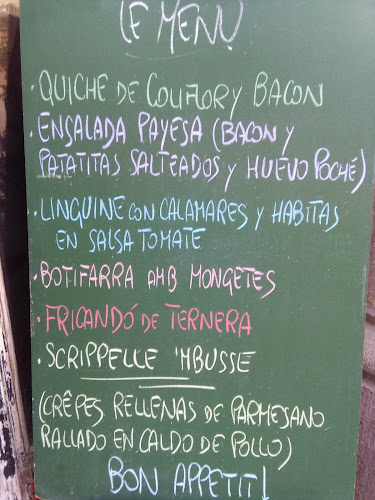 LE MENU
· QUICHE DE COLIFLOR Y BACON
· ENSALADA PAYESA (BACON Y
PATATITAS SALTEADOS Y HUEVO POCHÉ)
· LINGUINE CON CALAMARES Y HABITAS
EN SALSA TOMATE
· BOTIFARRA AMB MONGETES
· FRICANDÓ DE TERNERA
· SCRIPPELLE 'MBUSSE
(CRÊPES RELLENAS DE PARMESANO
RALLADO EN CALDO DE POLLO)
BON APPETIT!